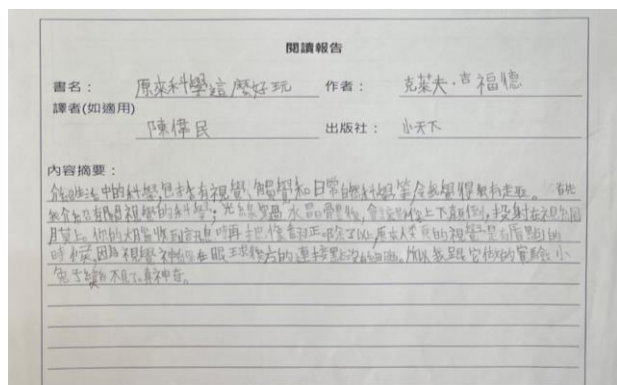 閱讀報告
書名： 原來科學這麼好玩 作者： 克萊夫·吉福德
譯者(如適用)
陳偉民 出版社： 小天下
內容摘要：
生活中的科學,包括有視覺、觸覺和日常的科學等,令我覺得無料走眼。 首先
有關視覺的科學；光線穿過水晶體後,會讓影像上下顛倒,投射在視網
膜上。你的大腦收到訊息時再把像 正。除了以 ,原來人 的視覺是有盲點的
時候,因為視覺神經在眼球後方的連接點沒有細胞。所以我跟它做的實驗,小
兔子 不見了,真神奇。